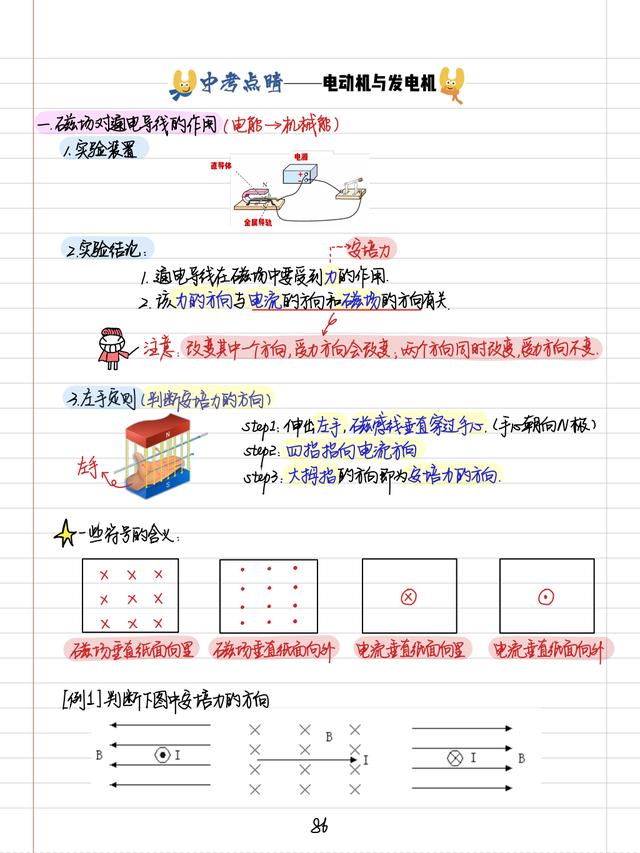 中考点晴——电动机与发电机
一.磁场对通电导线的作用(电能→机械能)
1.实验装置
电源
直导体
N
金属导轨
2.实验结论:
安培力
1.通电导线在磁场中要受到力的作用.
2.该力的方向与电流的方向和磁场的方向有关.
注意:改变其中一个方向,受力方向会改变;两个方向同时改变,受力方向不变.
3.左手定则(判断安培力的方向)
step1:伸出左手,磁感线垂直穿过手心.(手心朝向N极)
step2:四指指向电流方向
step3:大拇指的方向即为安培力的方向.
N
左手
S
一些符号的含义:
磁场垂直纸面向里 磁场垂直纸面向外 电流垂直纸面向里 电流垂直纸面向外
[例1]判断下图中安培力的方向
B I B I I B
86